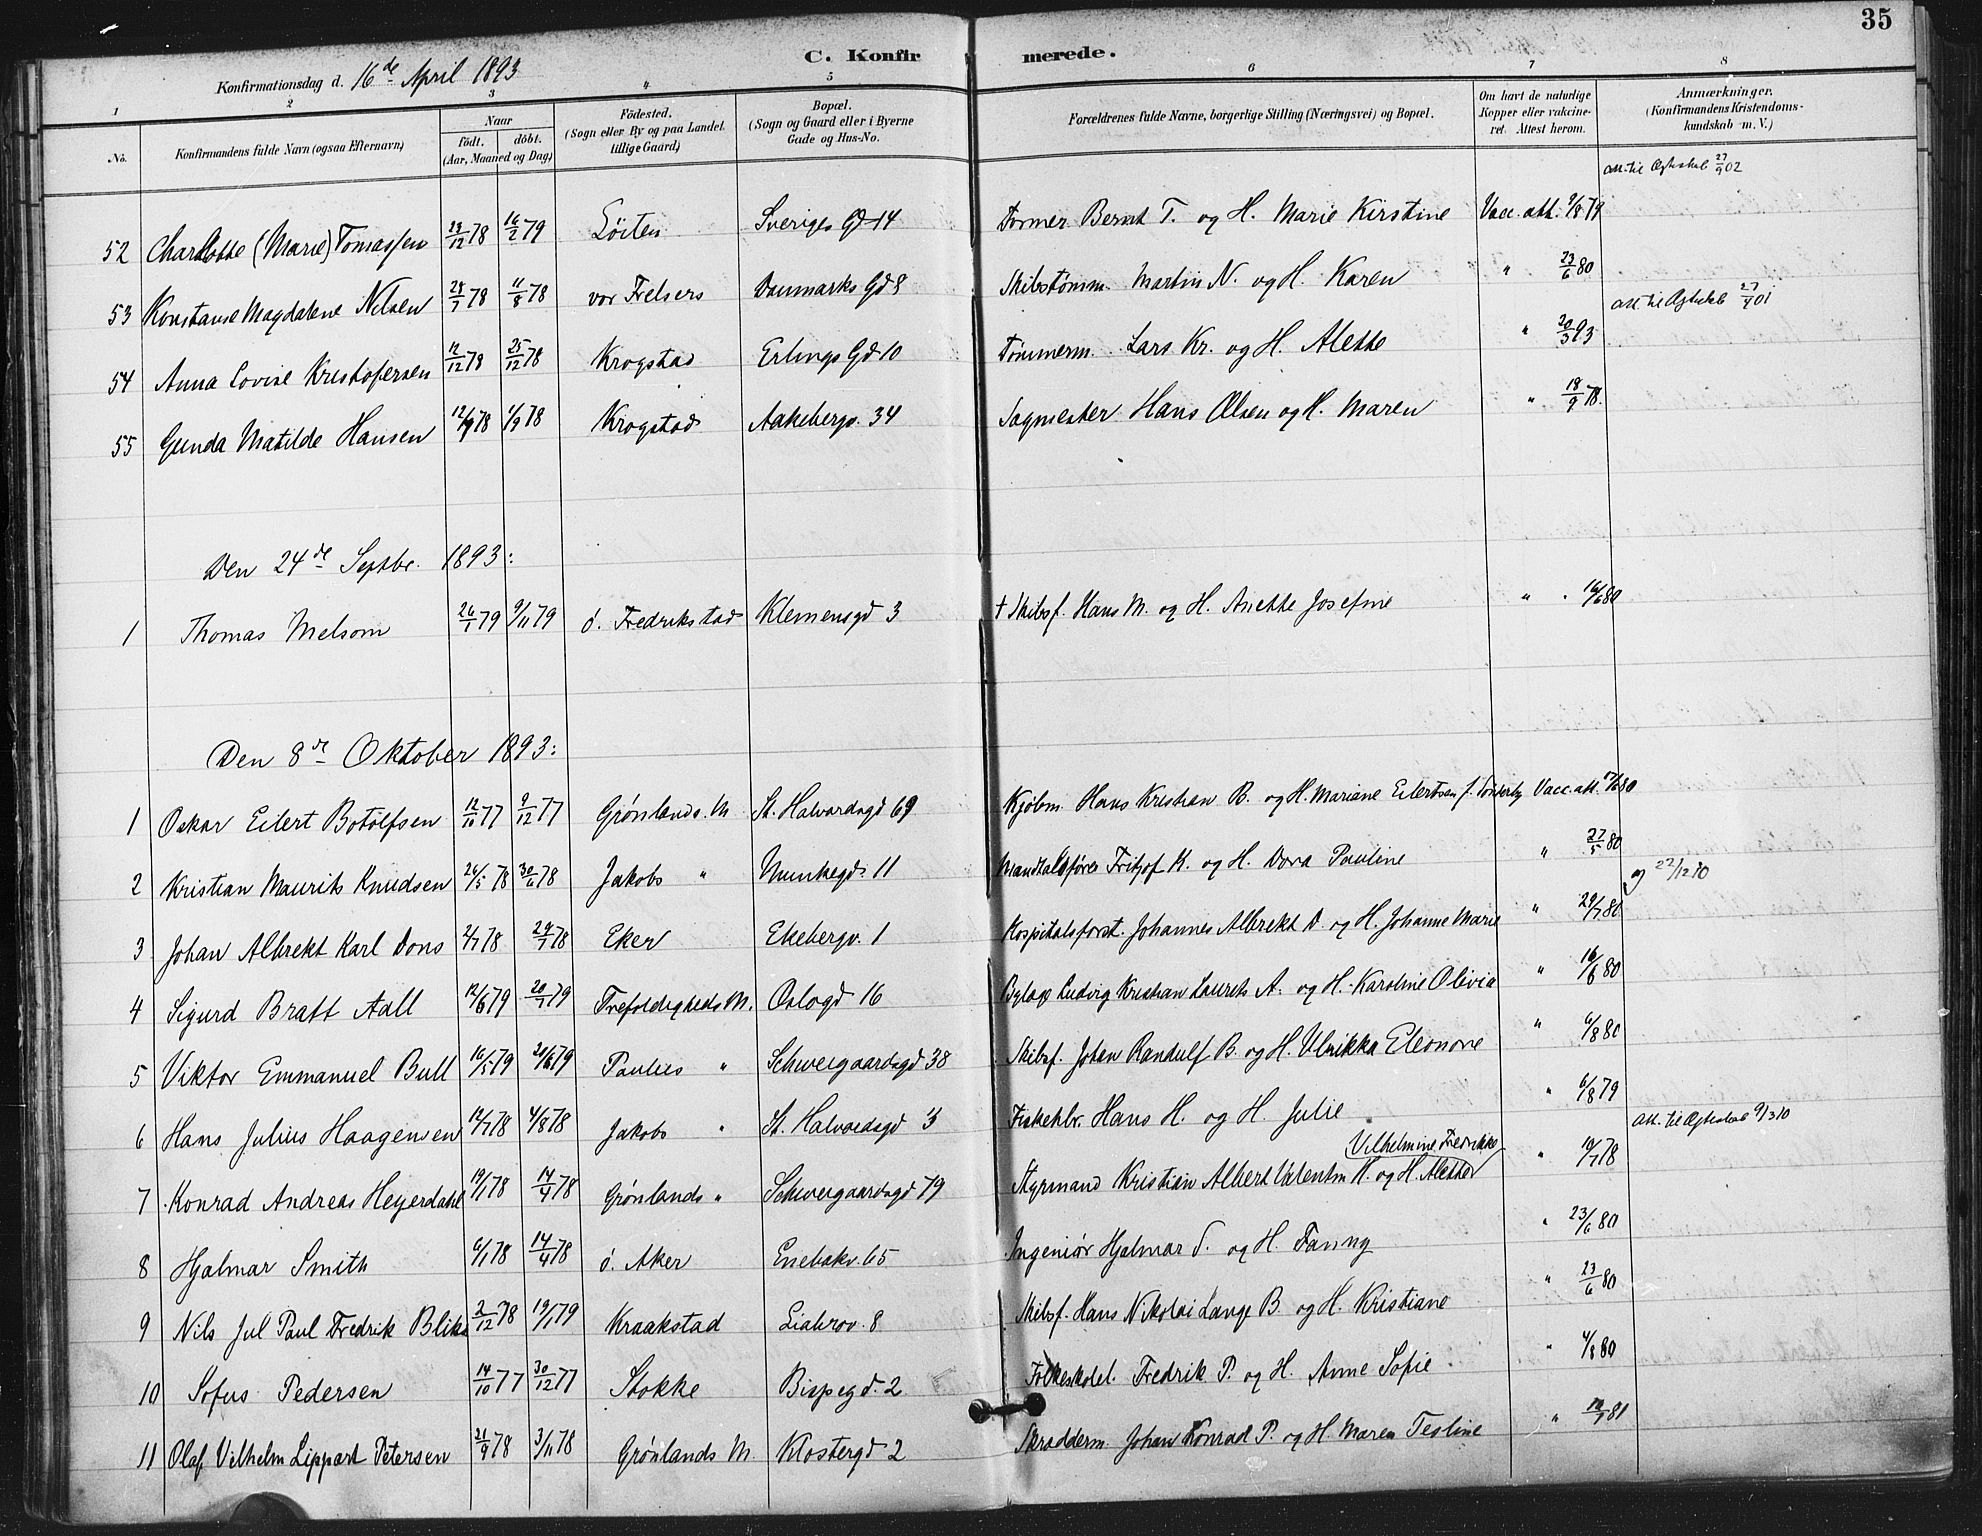 35
C. Konfirmerede.
Konfirmationsdag d. 16de April 1893
1 2 3 4 5 6 7 8
No. Konfirmandens fulde Navn (ogsaa Efternavn) Naar födt. döbt. (Aar, Maaned og Dag) Födested. (Sogn eller By og paa Landet tillige Gaard) Bopæl. (Sogn og Gaard eller i Byerne Gade og Hus-No. Forældrenes fulde Navne, borgerlige Stilling (Næringsvei) og Bopæl. Om havt de naturlige Kopper eller vakcineret. Attest herom. Anmærkninger. (Konfirmandens Kristendomskundskab m. V.)
att. til Ægteskab 27/9 02
52 Charlotte (Marie) Tomassen 28/12 78 16/2 79 Löiten Sveriges Gd 14 Former Bernt T. og H. Marie Kirstine Vacc. att. 9/8 79
53 Konstanse Magdalene Nilsen 28/7 78 11/8 78 vor Frelsers Danmarks Gd 8 Skibstømm. Martin N. og H. Karen " 23/6 80
att. til Ægteskab 27/9 01
54 Anna Lovise Kristofersen 12/12 78 25/12 78 Krogstad Erlings Gd 10 Tømmerm. Lars Kr. og H. Alette " 20/3 93
55 Gunda Matilde Hansen 12/9 78 1/9 78 Krogstad Aakebergv. 34 Sagmester Hans Olsen og H. Maren " 18/9 78.
Den 24de Septbr. 1893:
1 Thomas Melsom 26/1 79 9/11 79 ö. Fredrikstad Klemensgd 3 † Skibsf. Hans M. og H. Anette Josefine " 16/6 80
Den 8de Oktober 1893:
1 Oskar Eilert Botolfsen 12/10 77 9/12 77 Grønlands. M St. Halvardsgd 69 Kjöbm. Hans Kristian B. og H. Mariane Eilertsen f. Vacc. att. 17/6 80
2 Kristian Maurits Knudsen 26/5 78 30/6 78 Jakobs " Munkegd. 11 Mandtalsfører Fritjof K. og H. Dora Pauline " 27/5 80
22/12 10
3 Johan Albrekt Karl Dons 2/7 78 28/7 78 Eker Ekebergv. 1 Hospitalsforst. Johannes Albrekt D. og H. Johanne Marie " 29/7 80
4 Sigurd Bratt Aall 12/6 79 20/7 79 Trefoldigheds M. Oslogd 16 Ludvig Kristian Laurits A. og H. Karoline Olivia " 16/6 80
5 Viktor Emmanuel Bull 16/5 79 29/6 79 Paulus " Schweigaardsgd 38 Skibsf. Johan Randulf B. og H. Ulrikka Eleonore " 6/8 80
6 Hans Julius Haagensen 12/7 78 4/8 78 Jakobs " St. Halvardsgd 3 Fiskehlr. Hans H. og H. Julie " 6/8 79
att. til Ægteskab 9/3 10
Vilhelmine Fredrikke
7 Konrad Andreas Heyerdahl 19/1 78 14/4 78 Grønlands " Schweigaardsgd 79 Styrmand Kristian Albert Valentin H. og H. Alette " 10/7 78
8 Hjalmar Smith 6/1 78 14/4 78 ö. Aker Enebakv. 65 Ingeniör Hjalmar S. og H. Fanny " 23/6 80
9 Nils Jul Paul Fredrik Blix 2/12 78 19/1 79 Kraakstad Liabrov. 8 Skibsf. Hans Nikolai Lange B. og H. Kristiane " 23/6 80
10 Sofus Pedersen 14/10 77 30/12 77 Stokke Bispegd. 2 Folkeskolel. Fredrik P. og H. Anne Sofie " 4/8 80
11 Olaf Vilhelm Lippart Petersen 21/9 78 3/11 78 Grønlands M. Klostergd 2 Skrædderm. Johan Konrad P. og H. Maren Teoline " 81